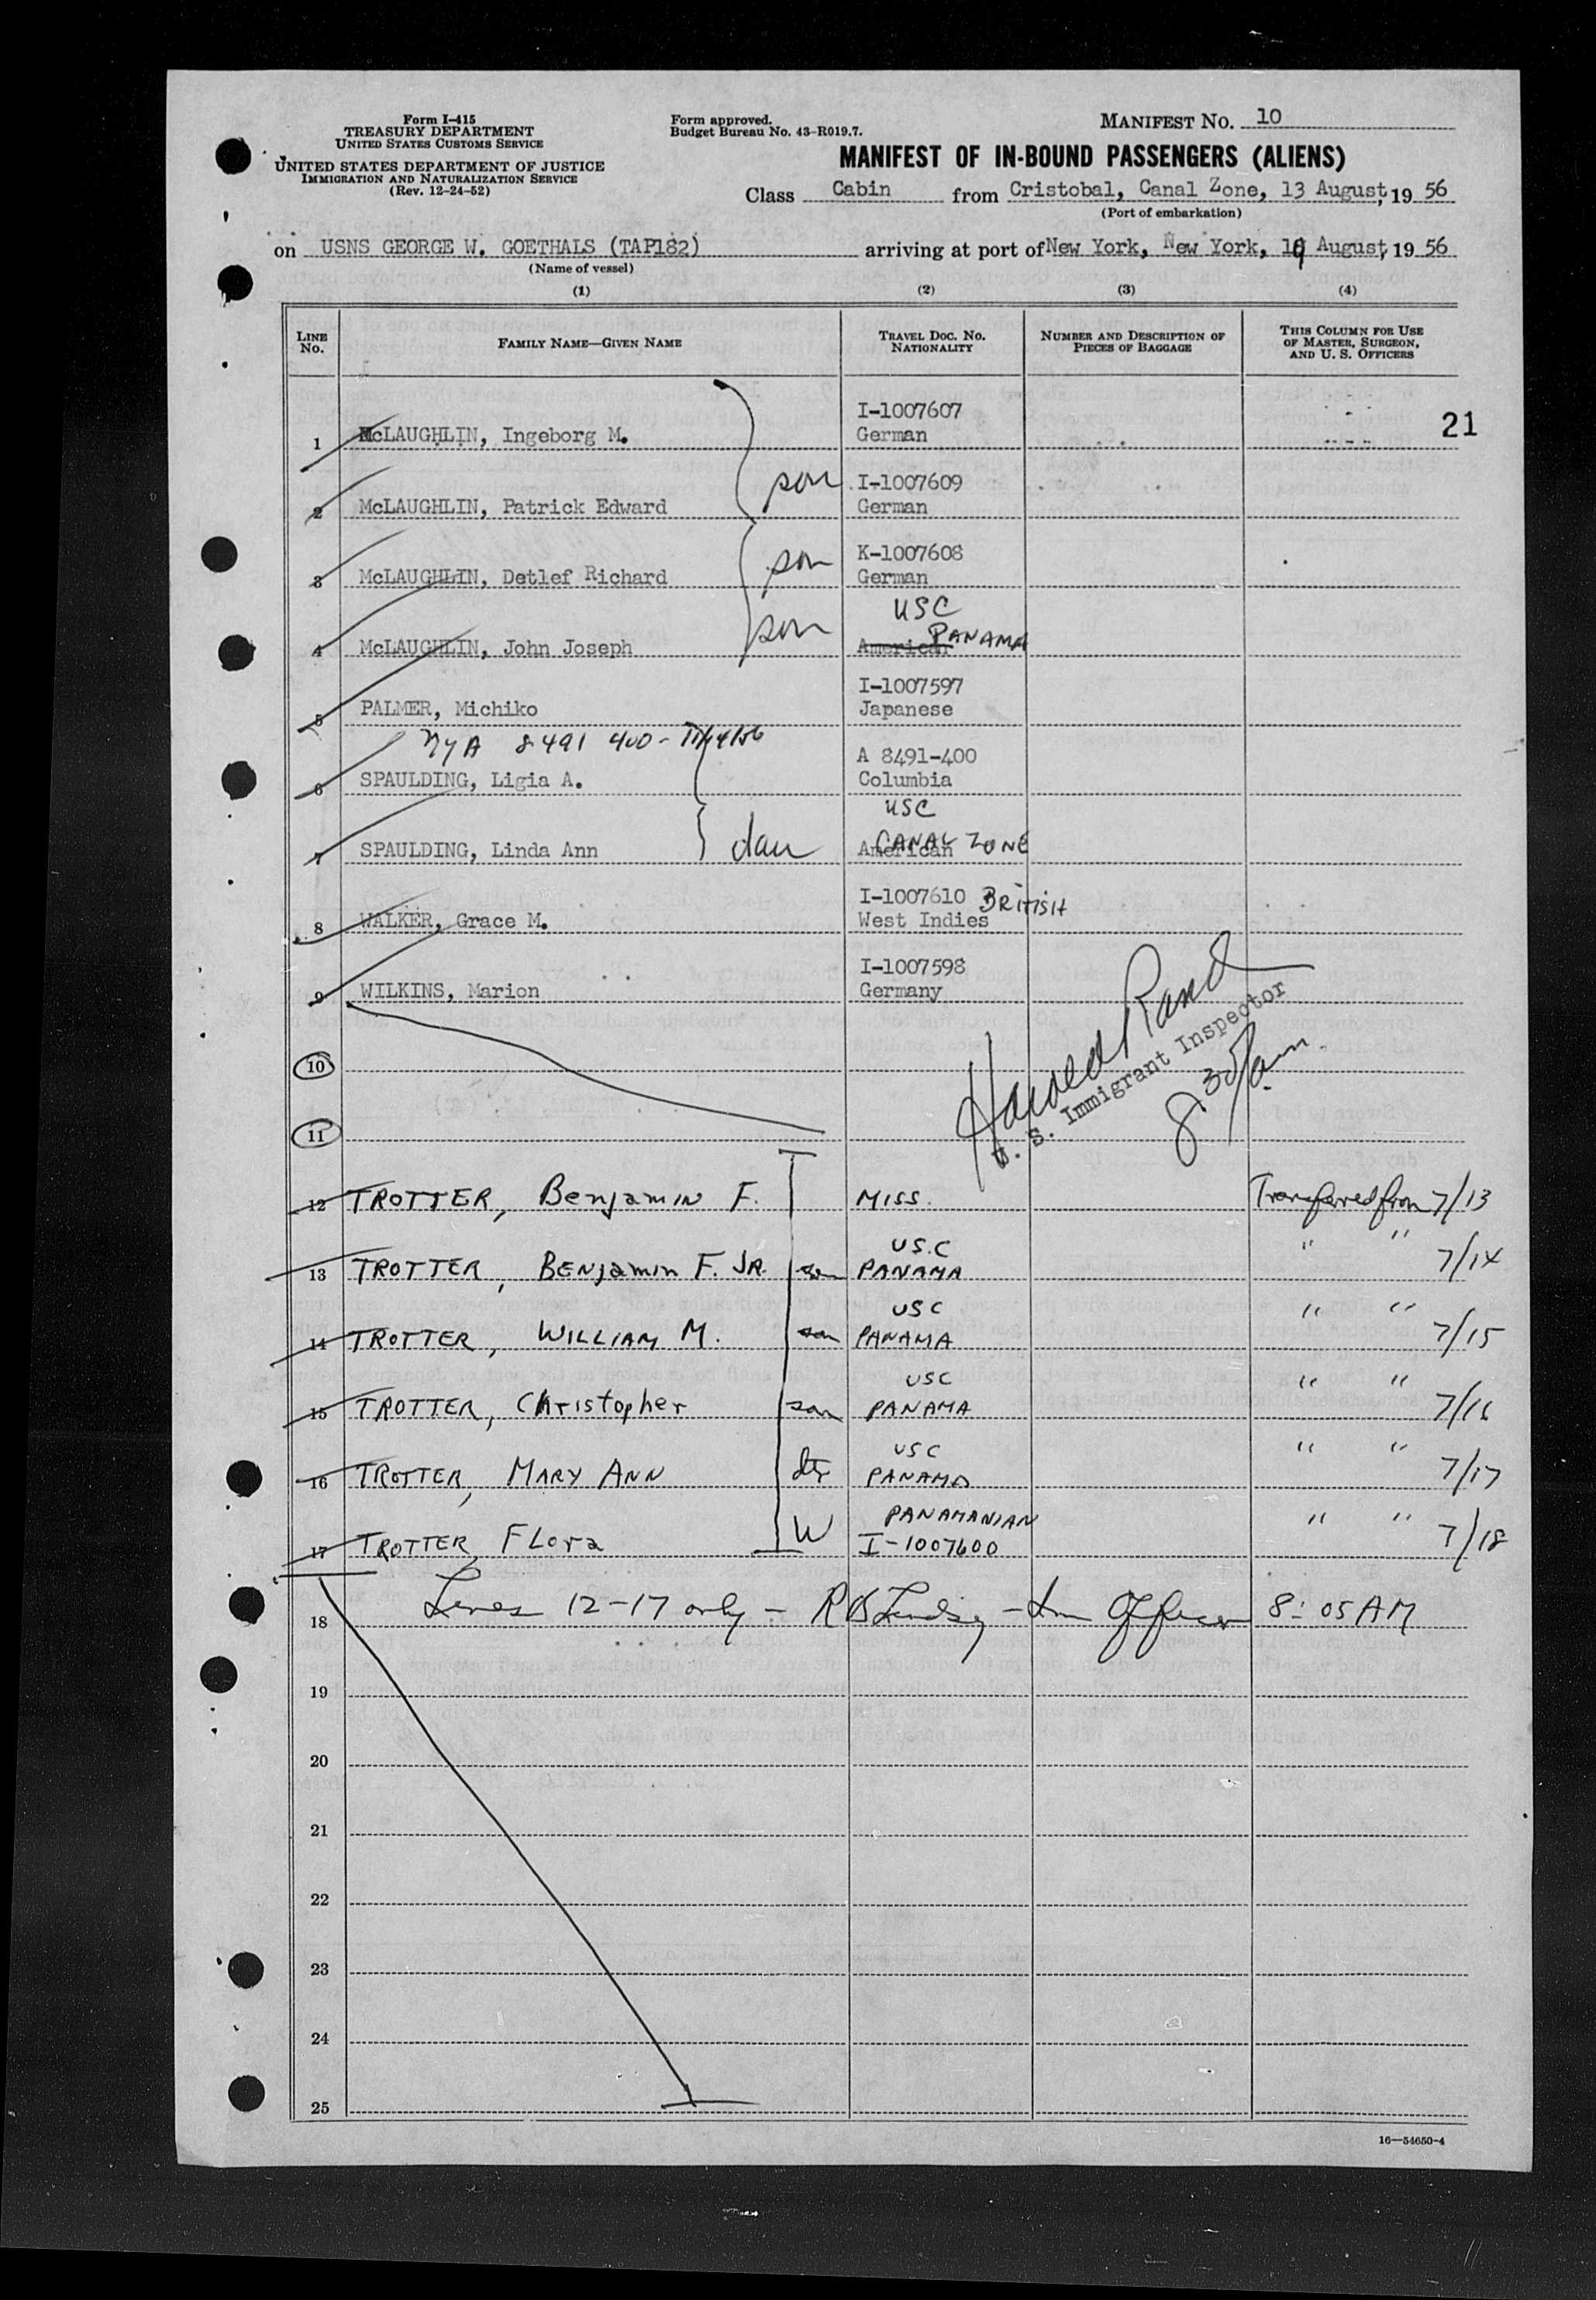 Form I-415
TREASURY DEPARTMENT
UNITED STATES CUSTOMS SERVICE
UNITED STATES DEPARTMENT OF JUSTICE
IMMIGRATION AND NATURALIZATION SERVICE
(Rev. 12-24-52)
Form approved.
Budget Bureau No. 43-R019.7.
MANIFEST NO. 10
MANIFEST OF IN-BOUND PASSENGERS (ALIENS)
Class Cabin from Cristobal, Canal Zone, 13 August, 19 56
(Port of embarkation)
on USNS GEORGE W. GOETHALS (TAP182) arriving at port of New York, New York, 19 August, 19 56
(Name of vessel)
(1) (2) (3) (4)
LINE NO. FAMILY NAME—GIVEN NAME TRAVEL DOC. NO. NATIONALITY NUMBER AND DESCRIPTION OF PIECES OF BAGGAGE THIS COLUMN FOR USE OF MASTER, SURGEON, AND U. S. OFFICERS
21
I-1007607
1 McLAUGHLIN, Ingeborg M. German
son I-1007609
2 McLAUGHLIN, Patrick Edward German
son K-1007608
3 McLAUGHLIN, Detlef Richard German
USC
son PANAMA
4 McLAUGHLIN, John Joseph American
I-1007597
5 PALMER, Michiko Japanese
NyA 8491 400 -
A 8491-400
6 SPAULDING, Ligia A. Columbia
USC
CANAL ZONE
7 SPAULDING, Linda Ann dau American
I-1007610 BRITISH
8 WALKER, Grace M. West Indies
I-1007598
9 WILKINS, Marion Germany
Harold Rand
U. S. Immigrant Inspector
8 30/am.
10
11
12 TROTTER, Benjamin F. MISS. Transferred from 7/13
USC
13 TROTTER, Benjamin F. JR. son PANAMA " " 7/14
USC
14 TROTTER, WILLIAM M. son PANAMA " " 7/15
USC
15 TROTTER, Christopher son PANAMA " " 7/16
USC
16 TROTTER, MARY ANN dtr PANAMA " " 7/17
PANAMANIAN
17 TROTTER, Flora W I-1007600 " " 7/18
18 Lines 12-17 only - R B Lindsey - Im Officer 8:05 AM
19
20
21
22
23
24
25
16—54650-4